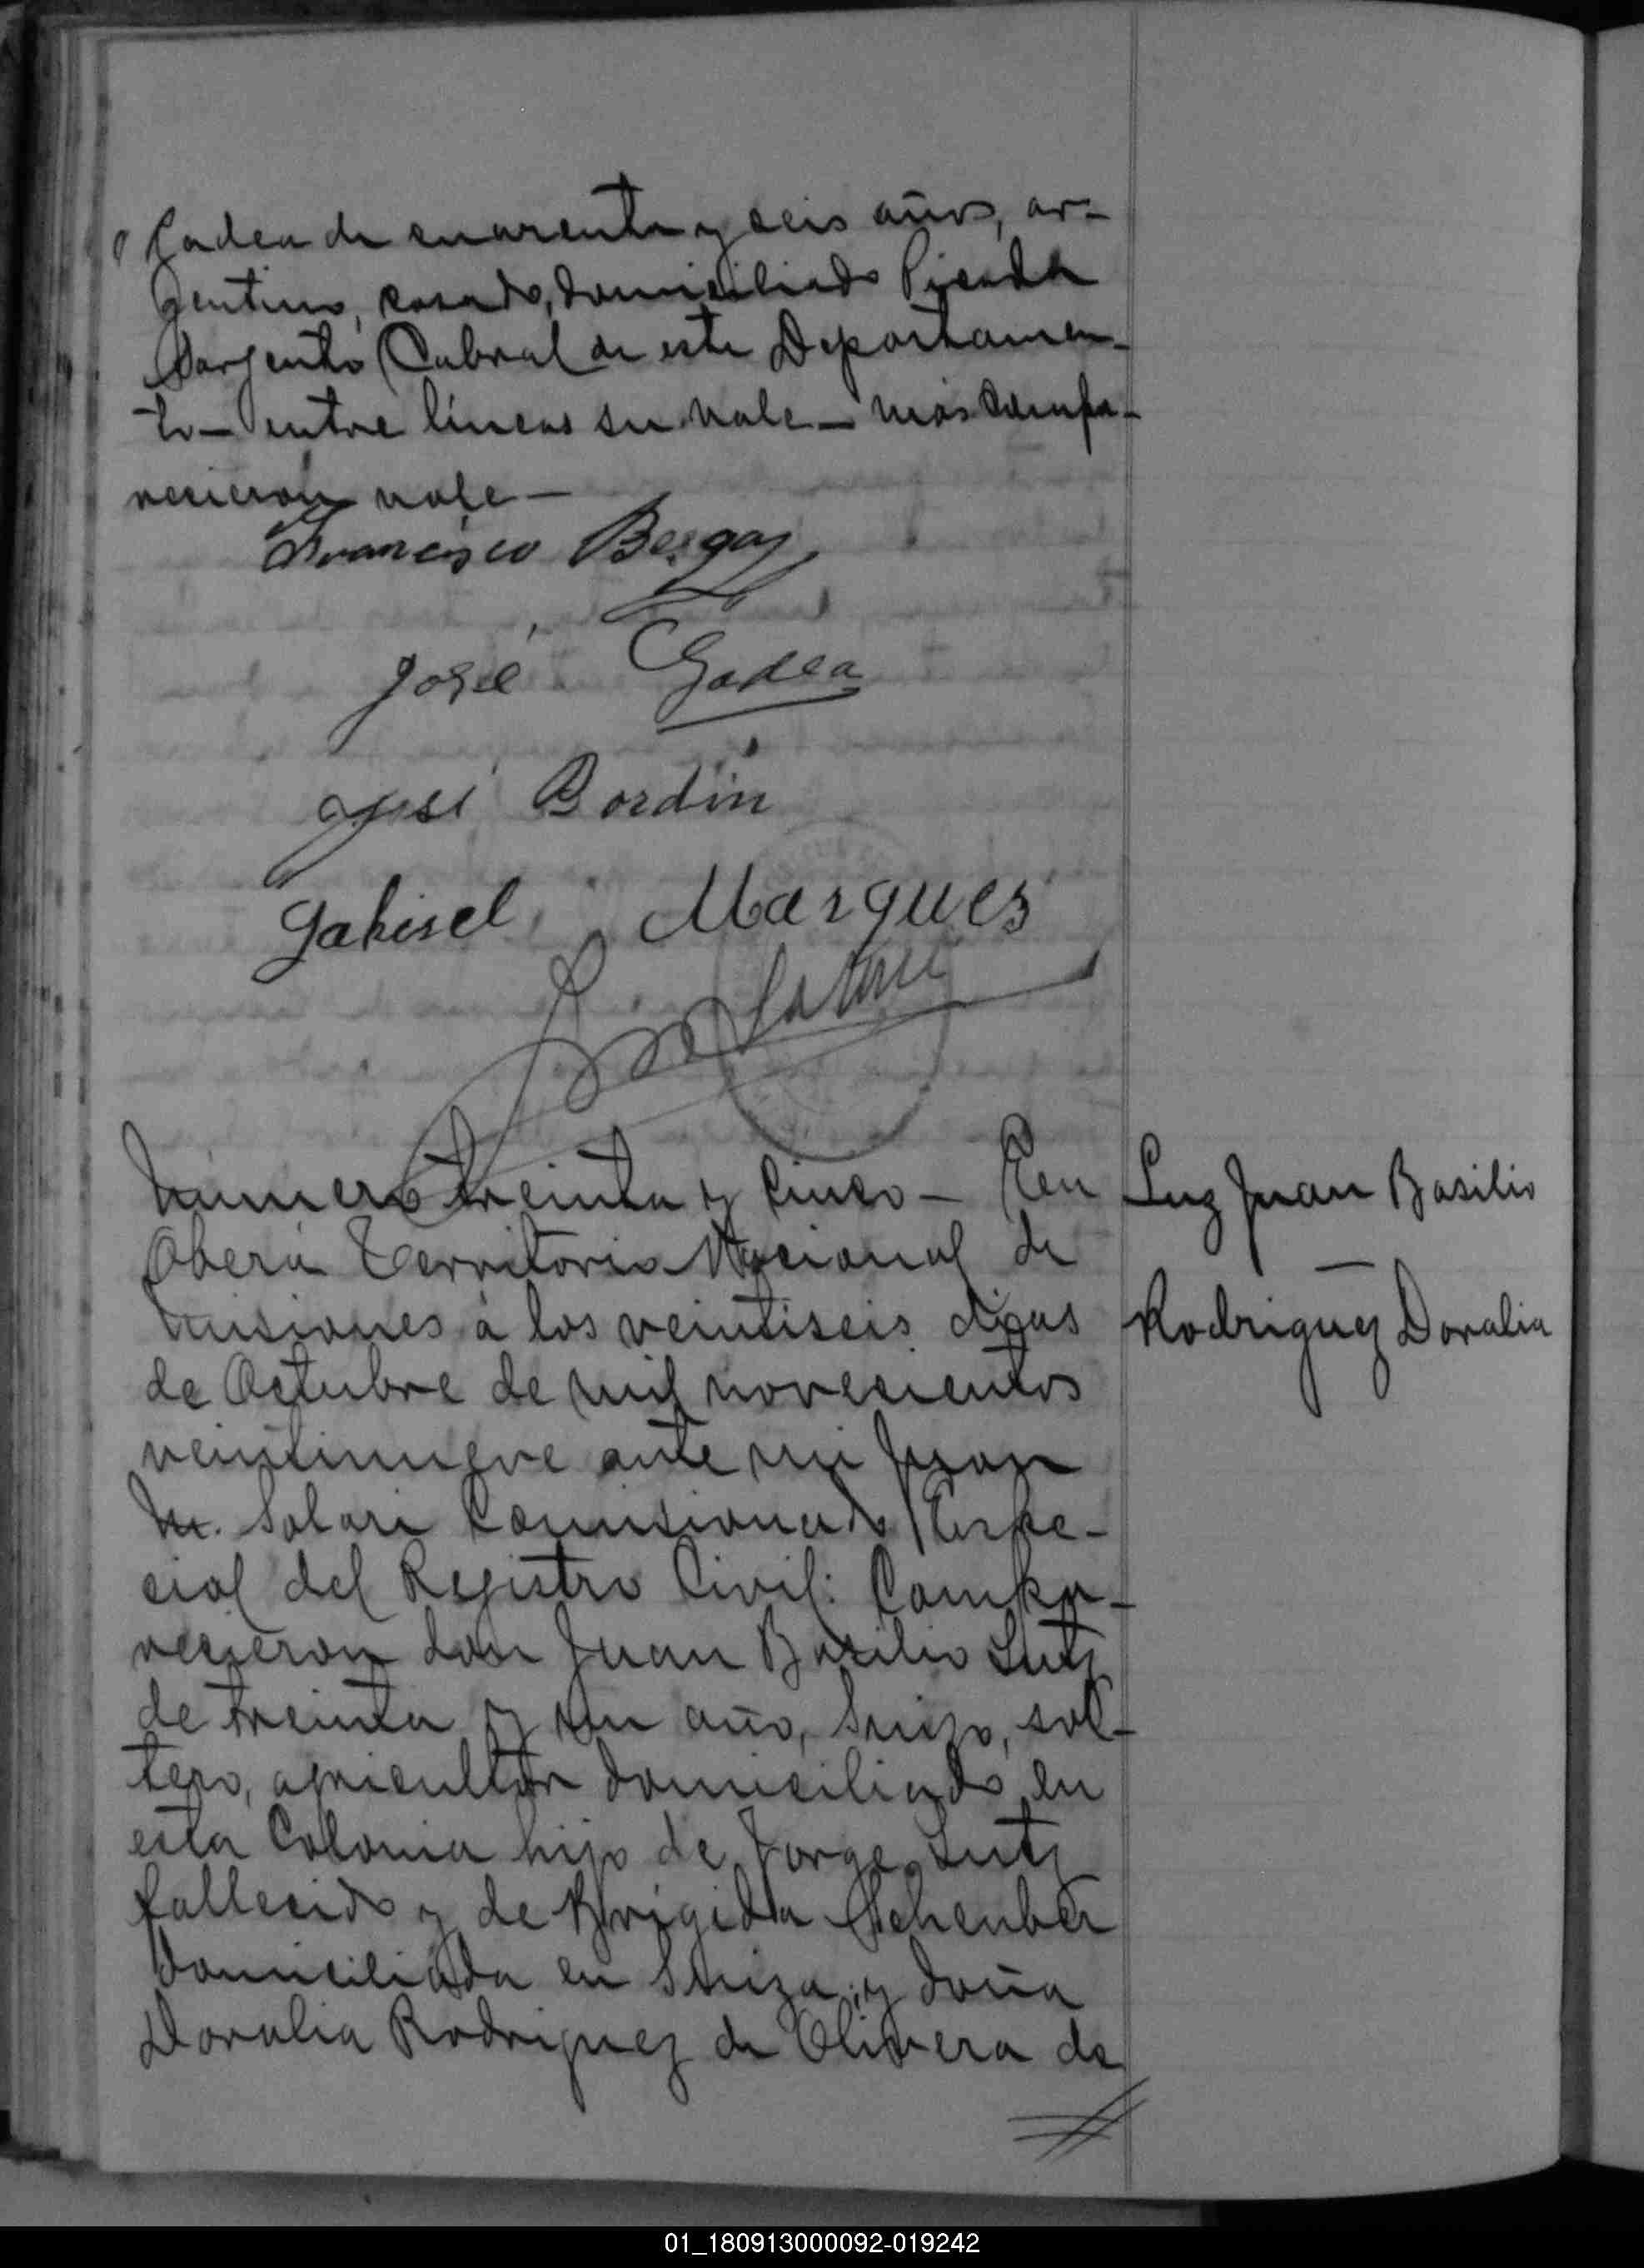 Gadea de cuarenta y seis años, ar-
gentino, casado, domiciliado Picada
Sargento Cabral de este Departamen-
to — entre líneas su vale — más compa-
recieron vale —
Francisco Bergas
José Gadea
José Bordin
Gabisel Marques
Número treinta y cinco — En
Oberá Territorio Nacional de
Misiones á los veintiseis dias
de Octubre de mil novecientos
veintinueve ante mi Juan
M. Solari Comisionado Espe-
cial del Registro Civil: Compa-
recieron don Juan Basilio Lutz
de treinta y un año, Suizo, sol-
tero, agricultor domiciliado en
esta Colonia hijo de Jorge Lutz
fallecido y de Brígida Scheuber
domiciliada en Suiza; y doña
Doralia Rodriguez de Olivera de
Luz Juan Basilio
—
Rodriguez Doralia
01_180913000092-019242